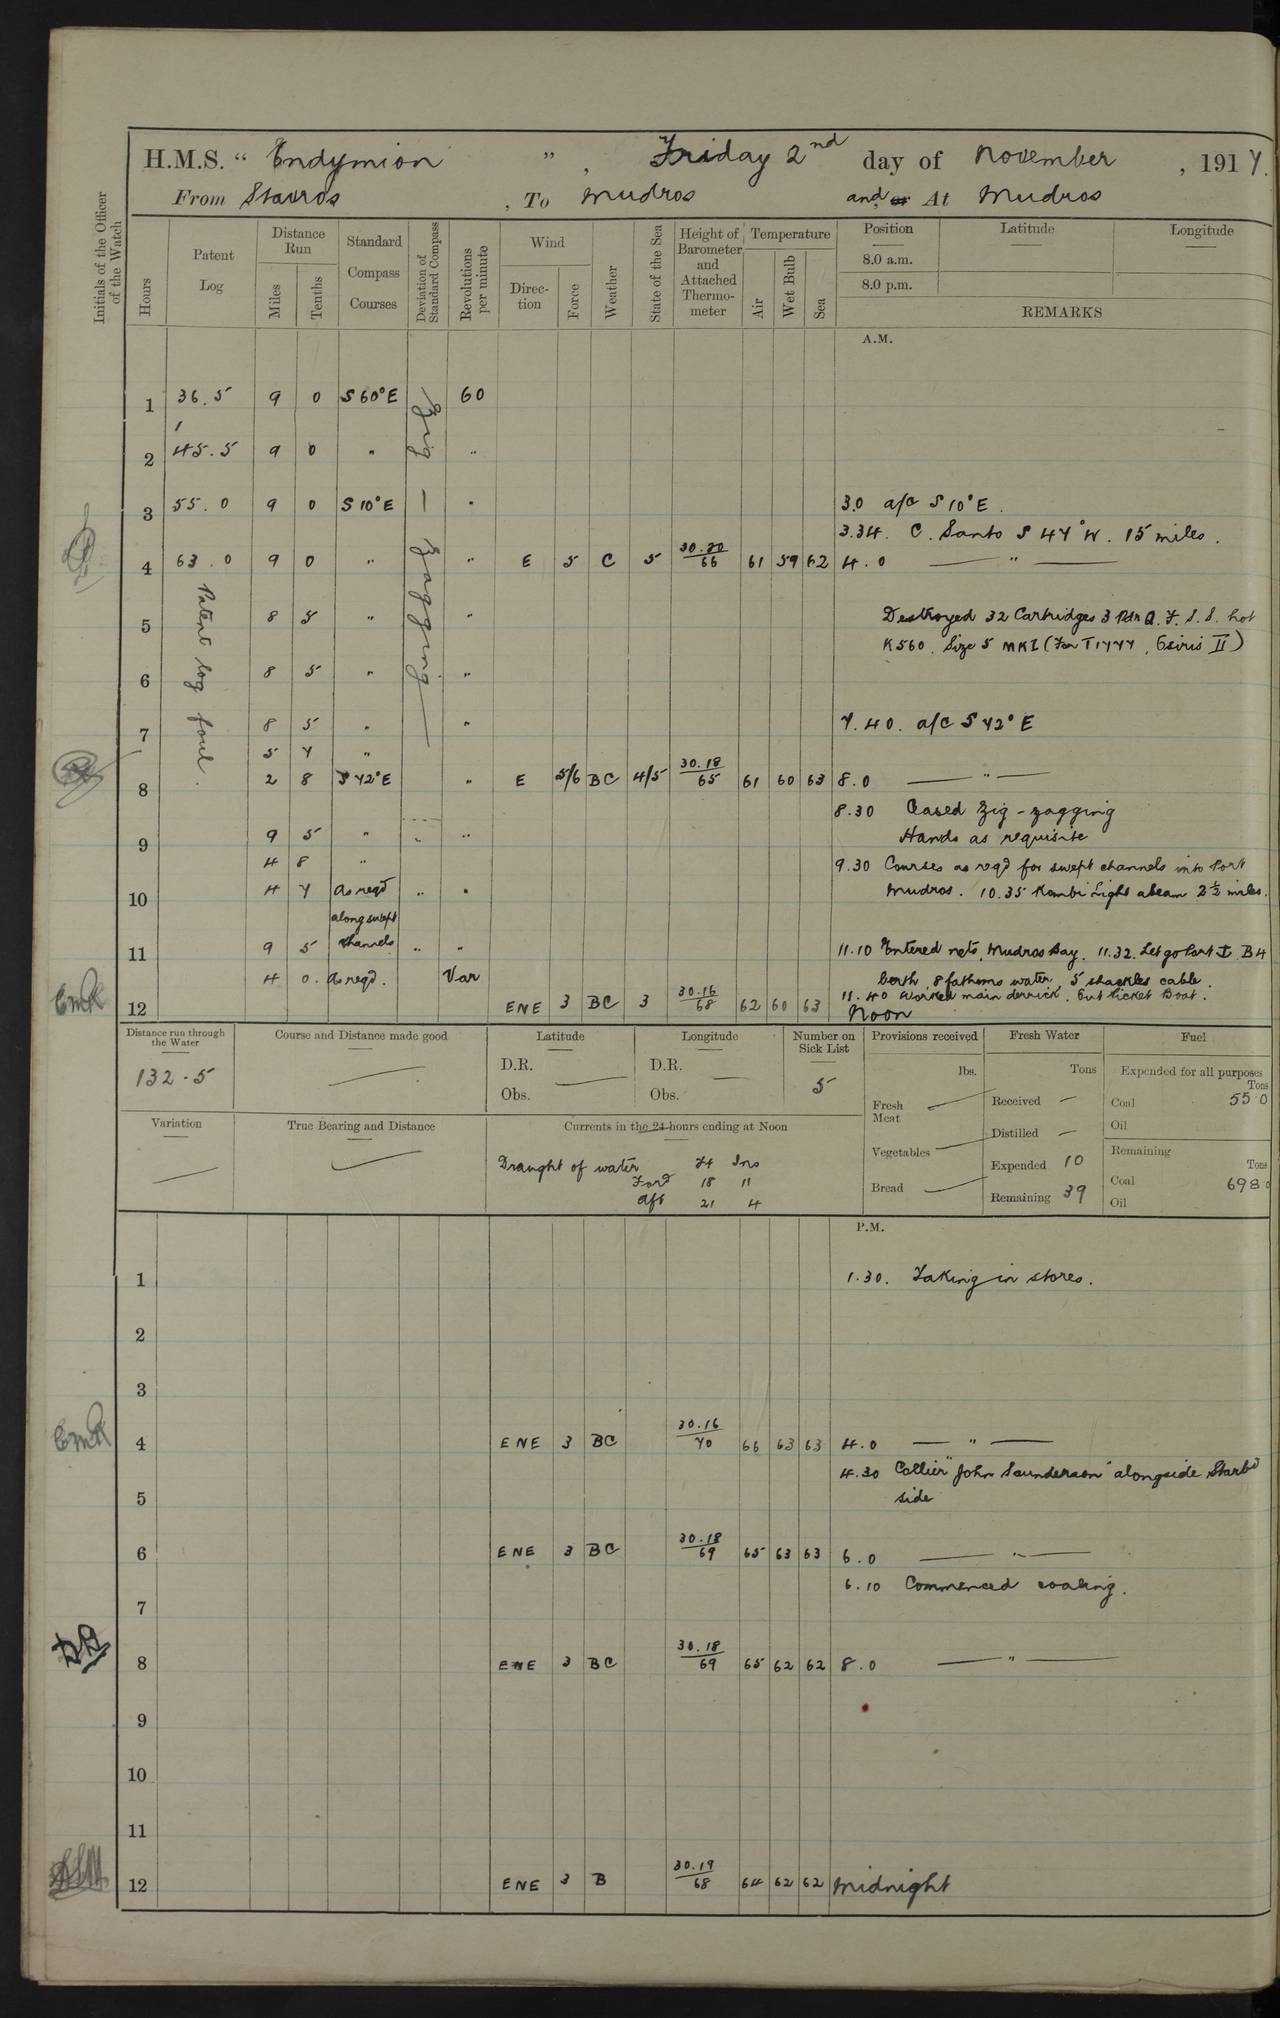 H.M.S. “ Endymion ” , Friday 2nd day of November , 1917.
From Stavros , To Mudros and or At Mudros
Initials of the Officer of the Watch
Hours
Patent Log
Distance Run
Miles
Tenths
Standard Compass Courses
Deviation of Standard Compass
Revolutions per minute
Wind
Direction
Force
Weather
State of the Sea
Height of Barometer and Attached Thermometer
Temperature
Air
Wet Bulb
Sea
Position Latitude Longitude
8.0 a.m.
8.0 p.m.
REMARKS
A.M.
1 36.5 9 0 S 60° E 60
2 45.5 9 0 " "
Zig — Zagging —
3 55.0 9 0 S 10° E " 3.0 a/c S 10° E.
3.34. C. Santo S 47° W. 15 miles.
4 63.0 9 0 " " E 5 C 5 30.20/66 61 59 62 4.0 — " —
Patent log foul.
5 8 5 " " Destroyed 32 Cartridges 3 Pdr Q.F. S.S. Lot
K560. Size 5 MK I (
6 8 5 " "
7 8 5 " " 7.40. a/c S 72° E
5 7 "
8 2 8 S 72° E " E 5/6 BC 4/5 30.18/65 61 60 63 8.0 — " —
8.30 Ceased Zig-zagging
9 9 5 " " " Hands as requisite
4 8 " 9.30 Courses as reqd for swept channels into Port
10 4 7 As reqd " " Mudros. 10.35 Kombi Light abeam 2½ miles.
along swept
11 9 5 channels " " 11.10 Entered nets, Mudros Bay. 11.32. Let go Port ⚓ B4
4 0. As reqd. Var berth, 8 fathoms water, 5 shackles cable.
11.40 Worked main derrick. Out Picket Boat.
12 ENE 3 BC 3 30.16/68 62 60 63 Noon
EMK
Distance run through the Water
132.5
Course and Distance made good
Latitude
D.R.
Obs.
Longitude
D.R.
Obs.
Number on Sick List
5
Provisions received
lbs.
Fresh Meat
Vegetables
Bread
Fresh Water
Tons
Received —
Distilled —
Expended 10
Remaining 39
Fuel
Expended for all purposes
Tons
Coal 55 0
Oil
Remaining
Tons
Coal 698 0
Oil
Variation
True Bearing and Distance
Currents in the 24 hours ending at Noon
Draught of water Ft Ins
Ford 18 11
Aft 21 4
P.M.
1 1.30. Taking in stores.
2
3
EMK
4 ENE 3 BC 30.16/70 66 63 63 4.0 — " —
4.30 Collier "John Saunderson" alongside Starbd
5 side
6 ENE 3 BC 30.18/69 65 63 63 6.0 — " —
6.10 Commenced coaling.
7
8 ENE 3 BC 30.18/69 65 62 62 8.0 — " —
9
10
11
12 ENE 3 B 30.19/68 64 62 62 Midnight